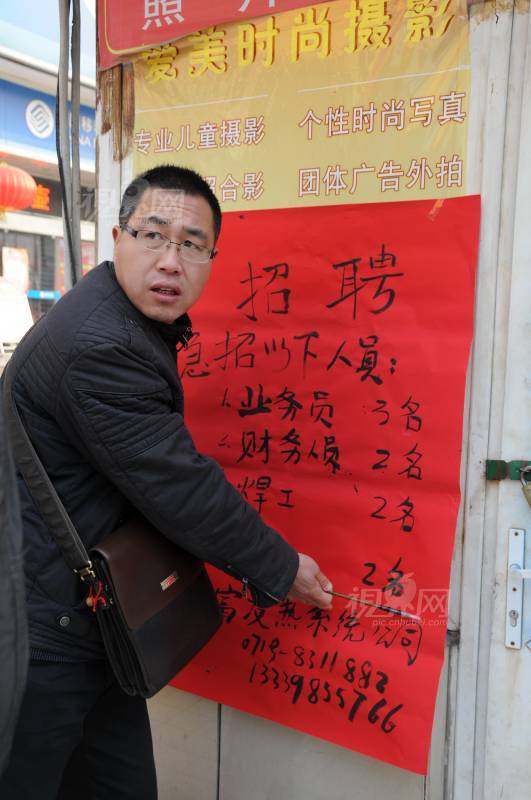 照片
爱美时尚摄影
专业儿童摄影 个性时尚写真
照合影 团体广告外拍
招聘
急招以下人员：
业务员 3名
财务员 2名
焊工 2名
2名
富源热系统公司
0719-8311882
13339855766
视界网
视界网
pic.cnhubei.com